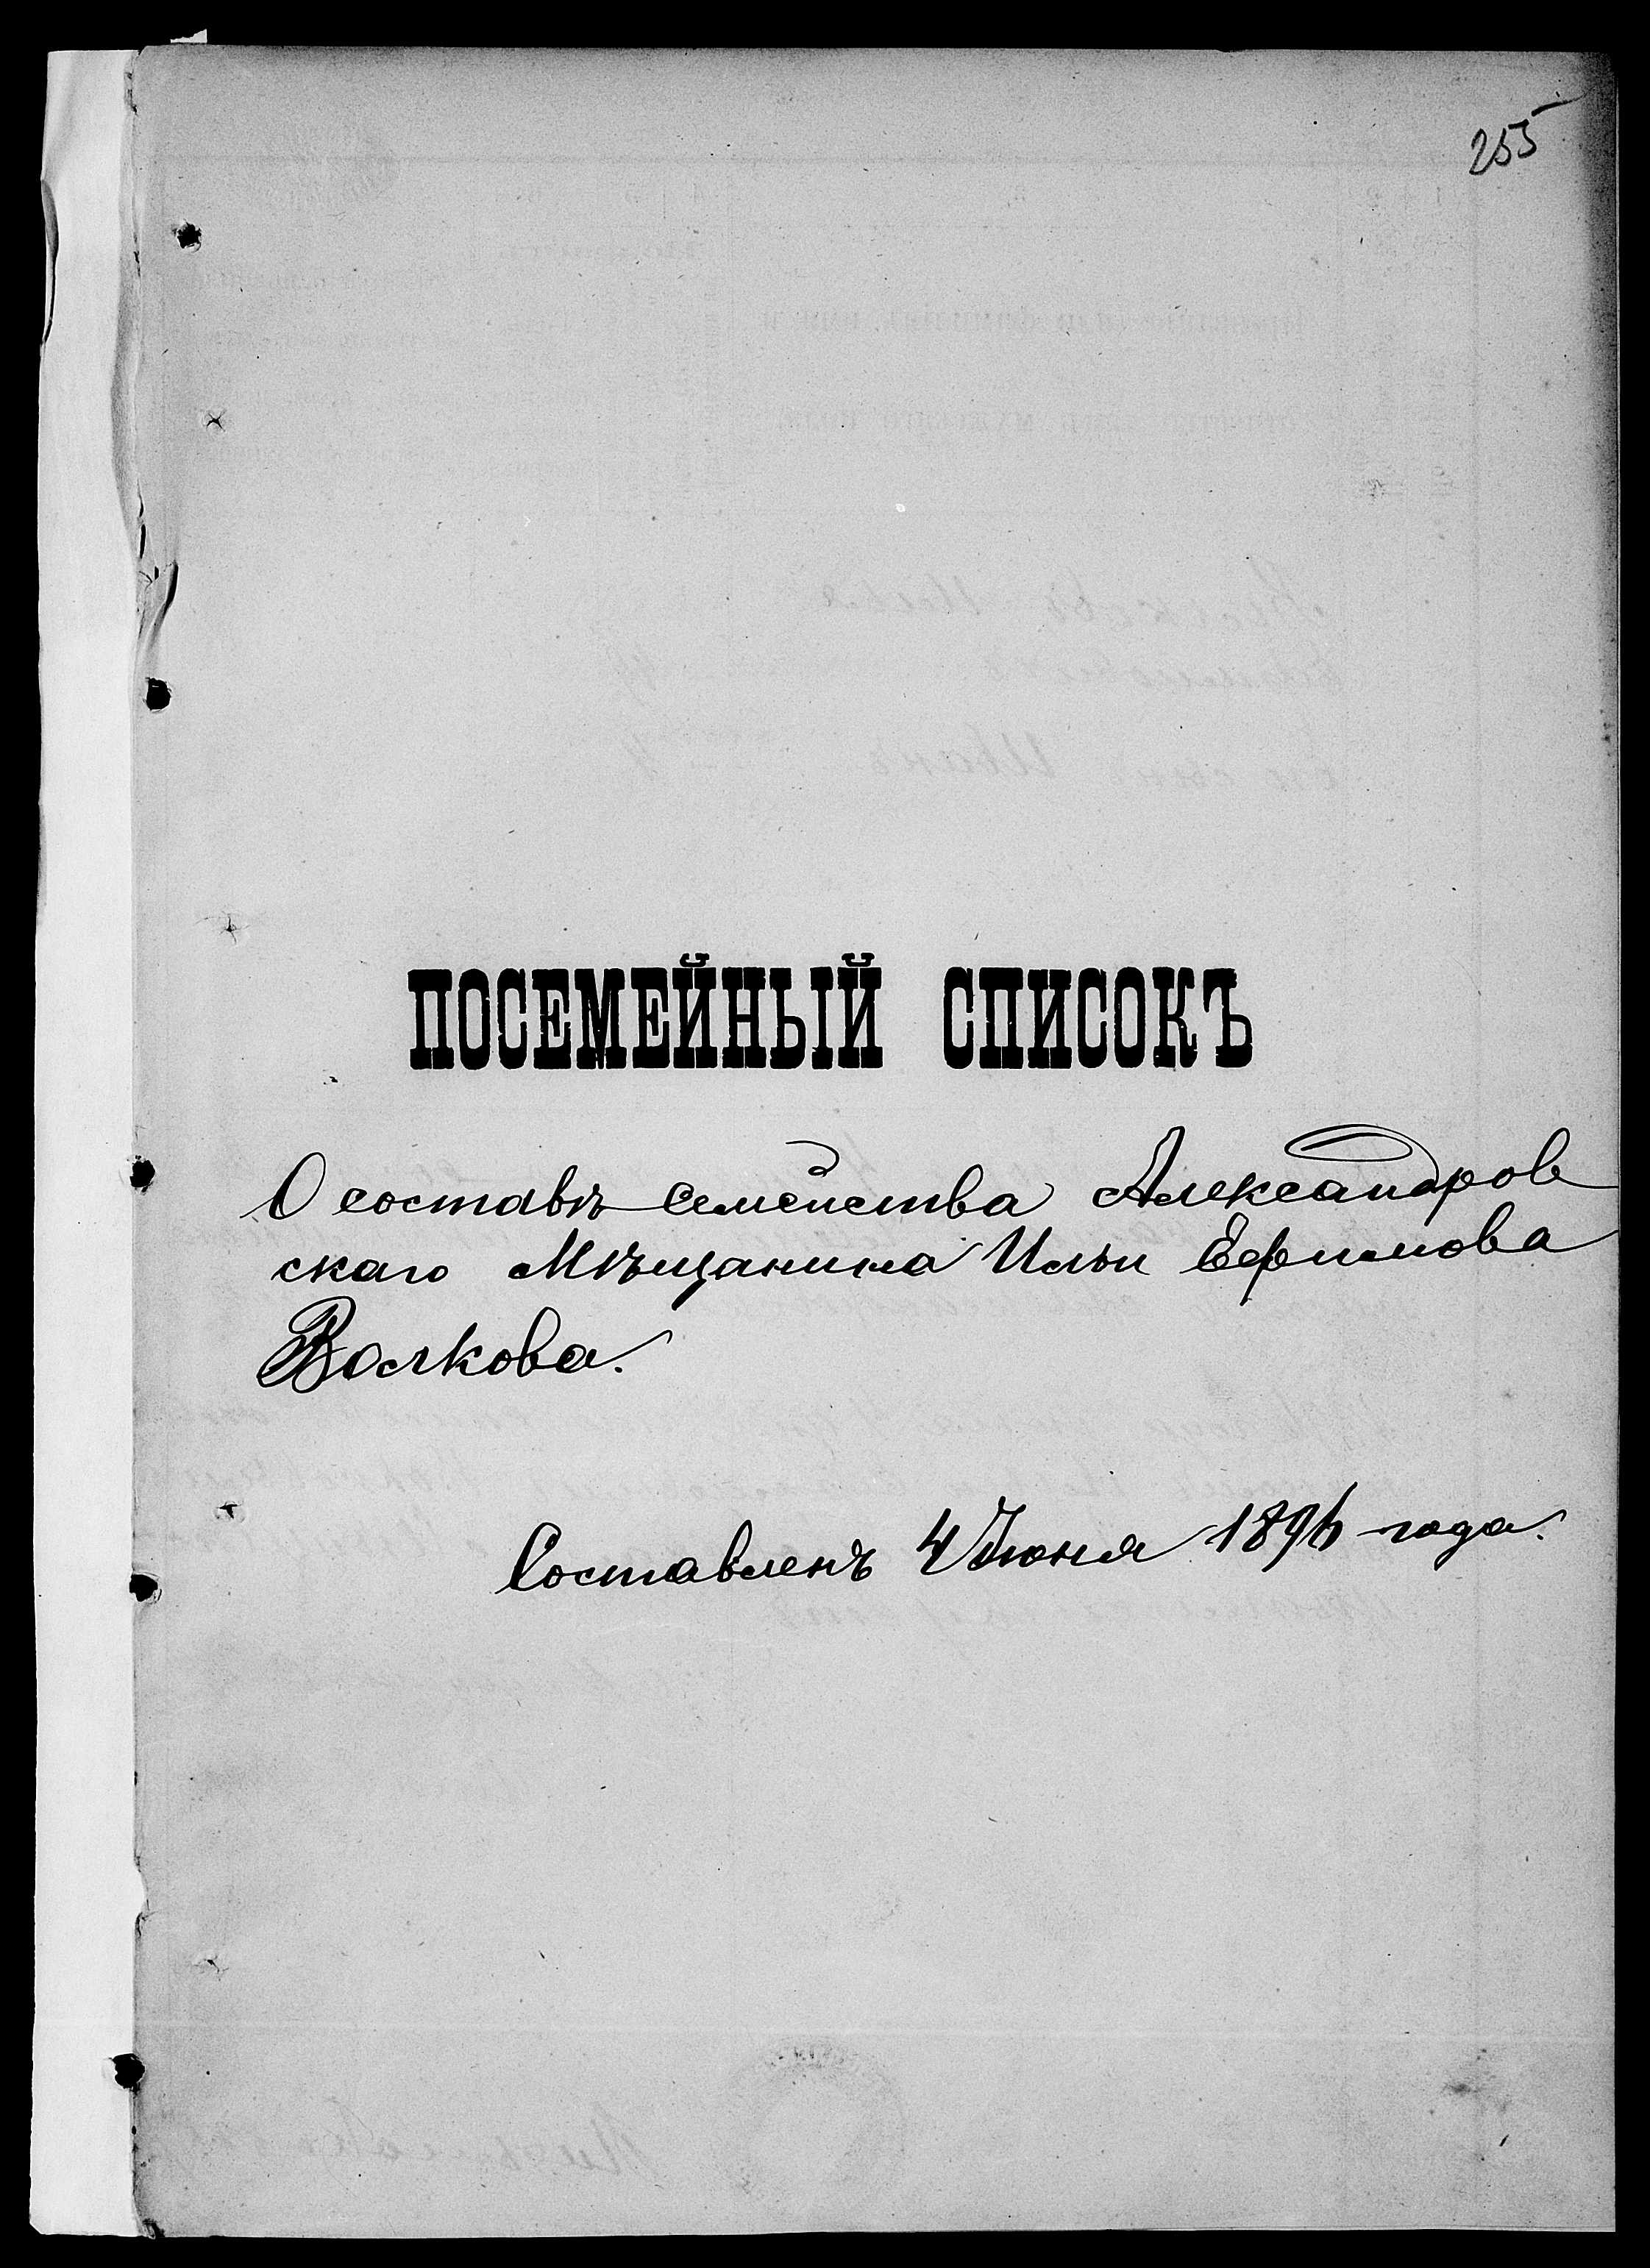 255
ПОСЕМЕЙНЫЙ СПИСОКЪ
О составѣ семейства Александров
скаго Мѣщанина Ильи Ефимова
Волкова.
Составленъ 4 Іюня 1896 года.